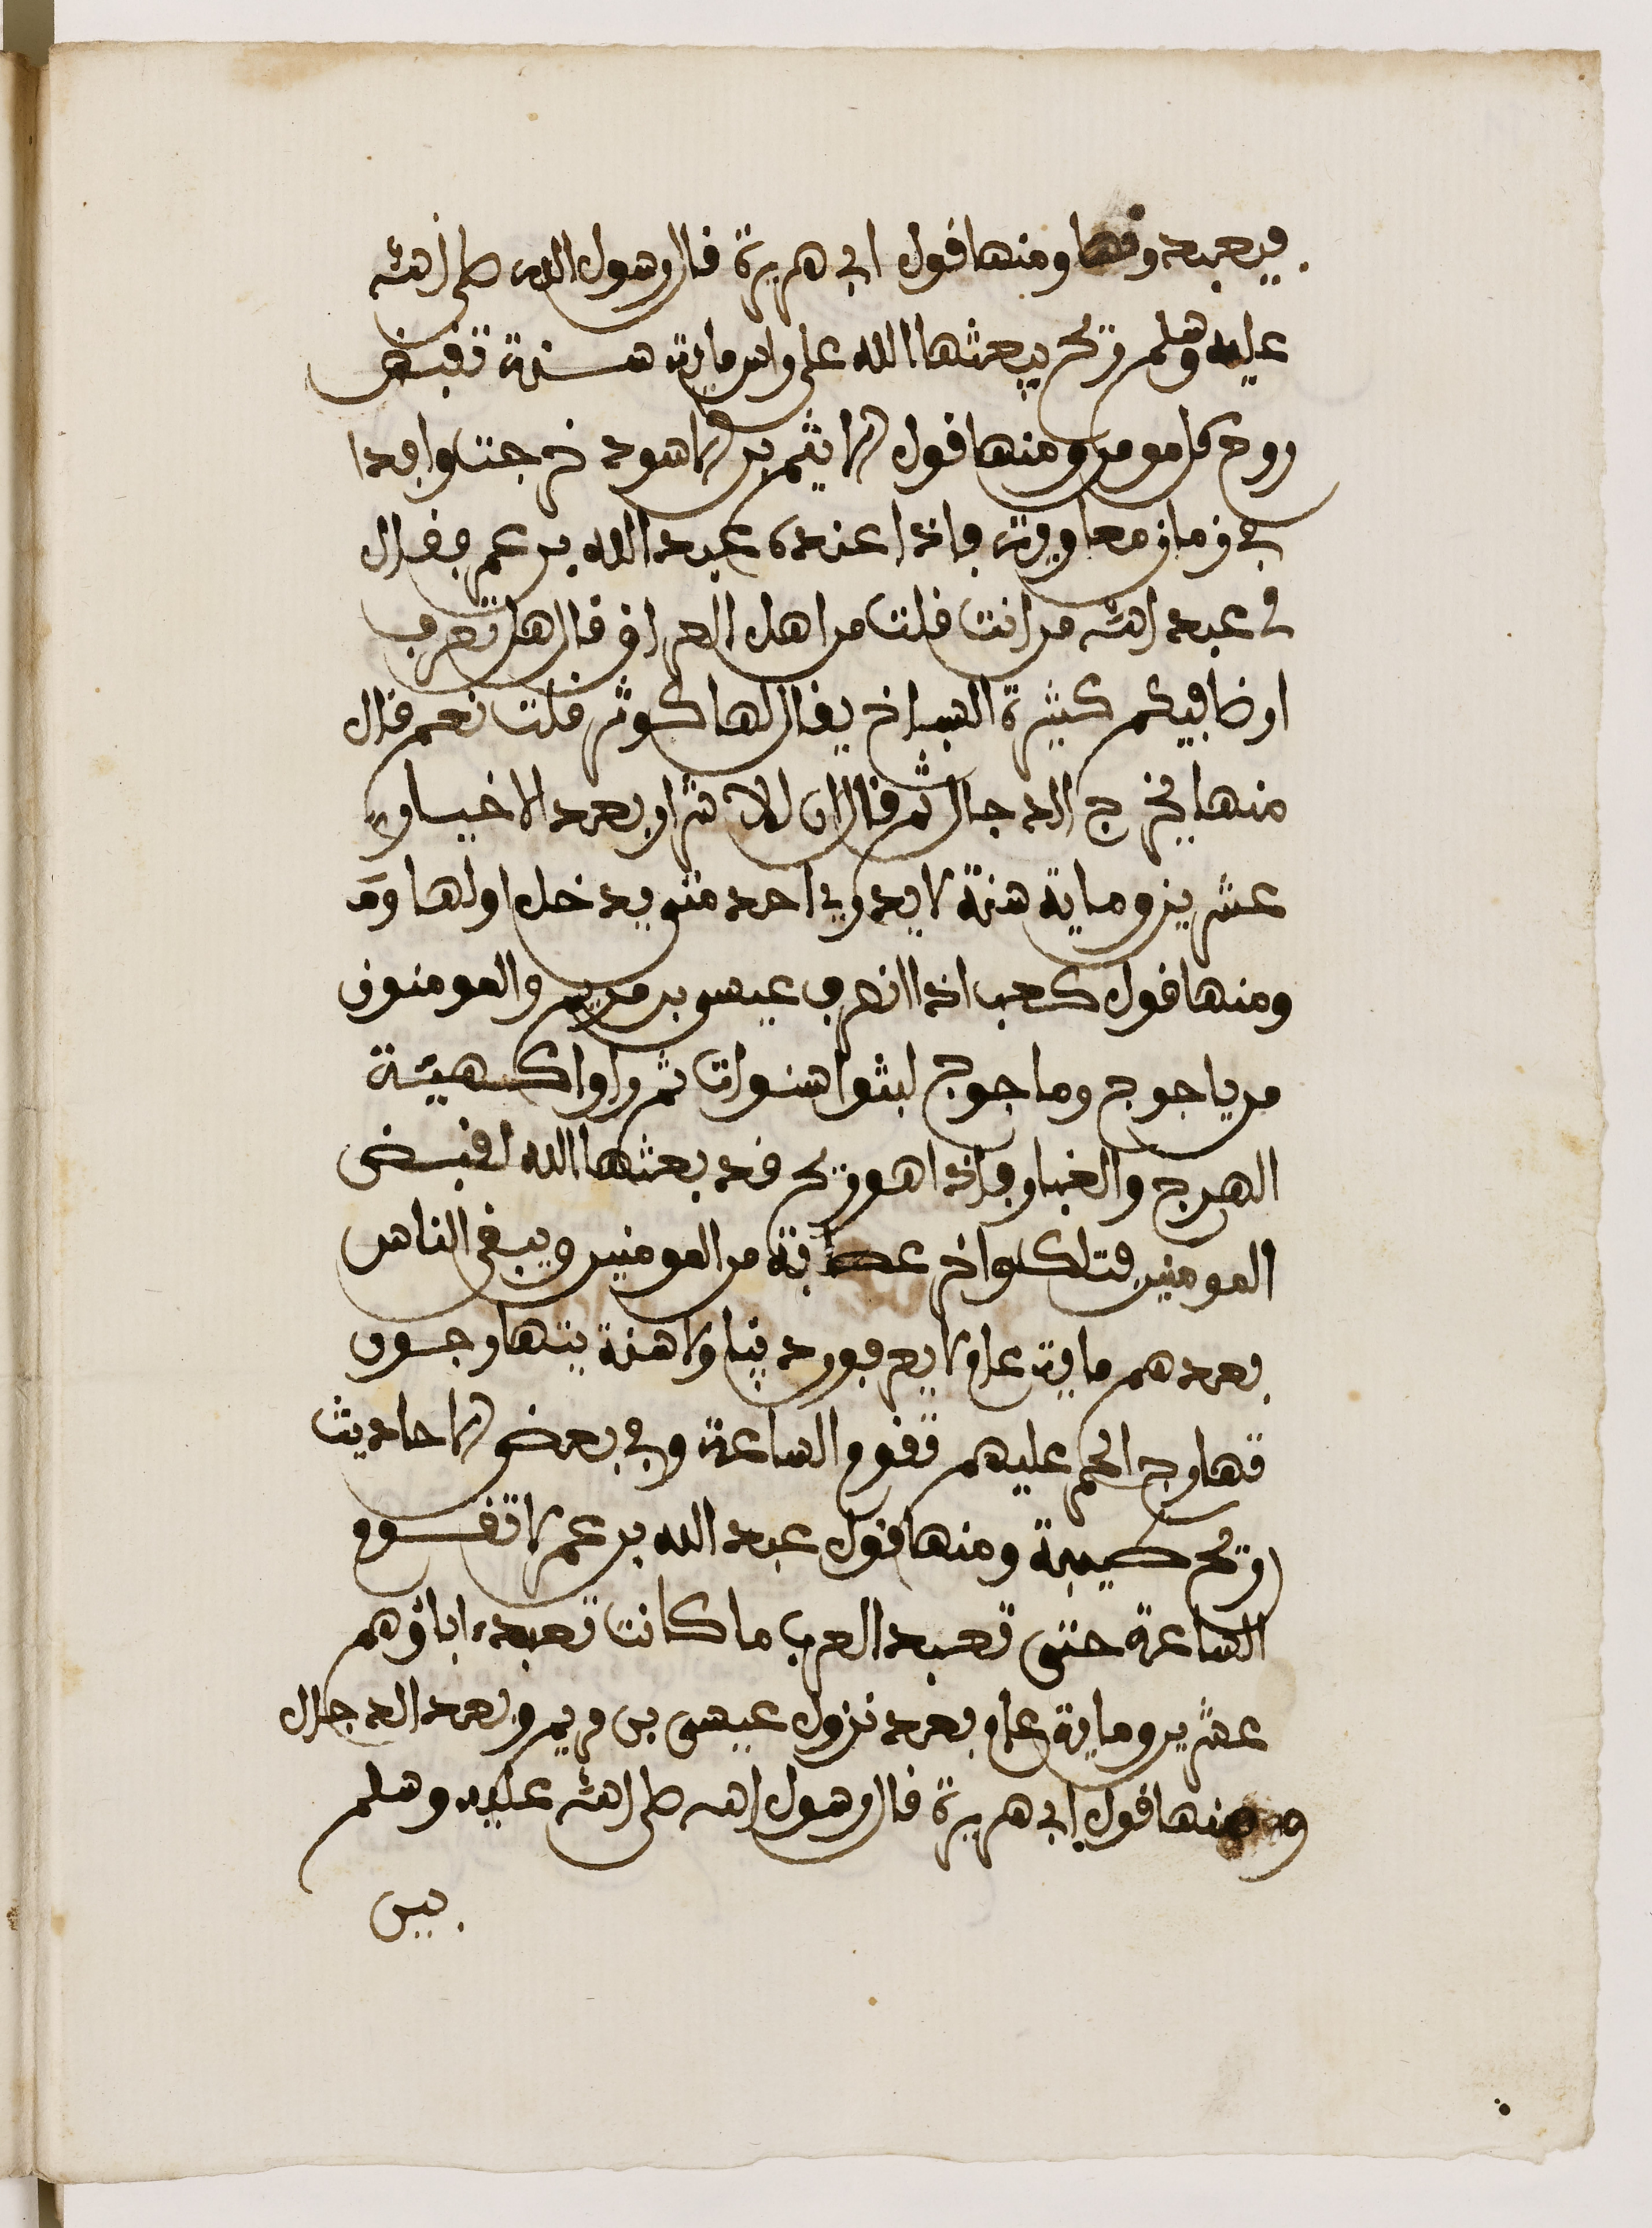 فيعبدونها ومنها قول ابي هريرة قال رسول الله صلى الله
عليه وسلم ريح يبعثها الله على راس ماية سنة تقبض
روح كل مومن ومنها قول الهيثم بن الاسود خرجت وافدا
في زمان معاوية فاذا عنده عبد الله بن عمر فقال
لي عبد الله من انت قلت من اهل العراق قال هل تعرف
ارضا فيكم كثيرة السباخ يقال لها كوثى قلت نعم قال
منها يخرج الدجال ثم قال ان للاشرار بعد الاخيار
عشرين وماية سنة لا يدري احد متى يدخل اولها
ومنها قول كعب اذا انصرف عيسى بن مريم والمومنون
من ياجوج وماجوج لبثوا سنوات ثم راوا كهيئة
الهرج والغبار فاذا هو ريح قد بعثها الله لقبض
المومنين فتلك واخر عصابة من المومنين ويبقى الناس
بعدهم ماية عام لا يعرفون دينا ولا سنة يتهارجون
تهارج الحمر عليهم تقوم الساعة وفي بعض الاحاديث
ريح طيبة ومنها قول عبد الله بن عمر لا تقوم
الساعة حتى تعبد العرب ما كانت تعبد ءاباؤهم
عشرين وماية عام بعد نزول عيسى بن مريم وبعد الدجال
ومنها قول ابي هريرة قال رسول الله صلى الله عليه وسلم
بين